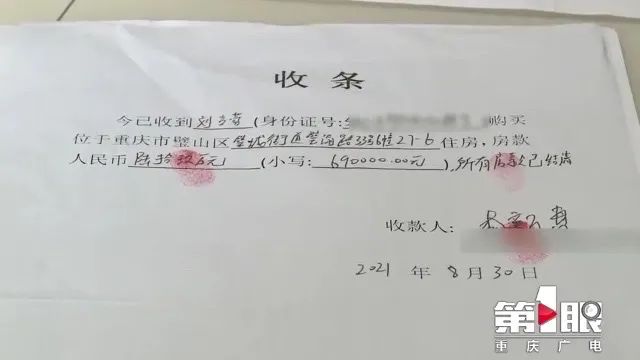 收条
今已收到 刘 (身份证号: 购买
位于重庆市璧山区 璧城街道 27-6 住房,房款
人民币 陆拾玖万元 (小写: 690000.00元 ),所有房款已结清
收款人:
2021 年 8月 30 日
第1眼
重庆广电